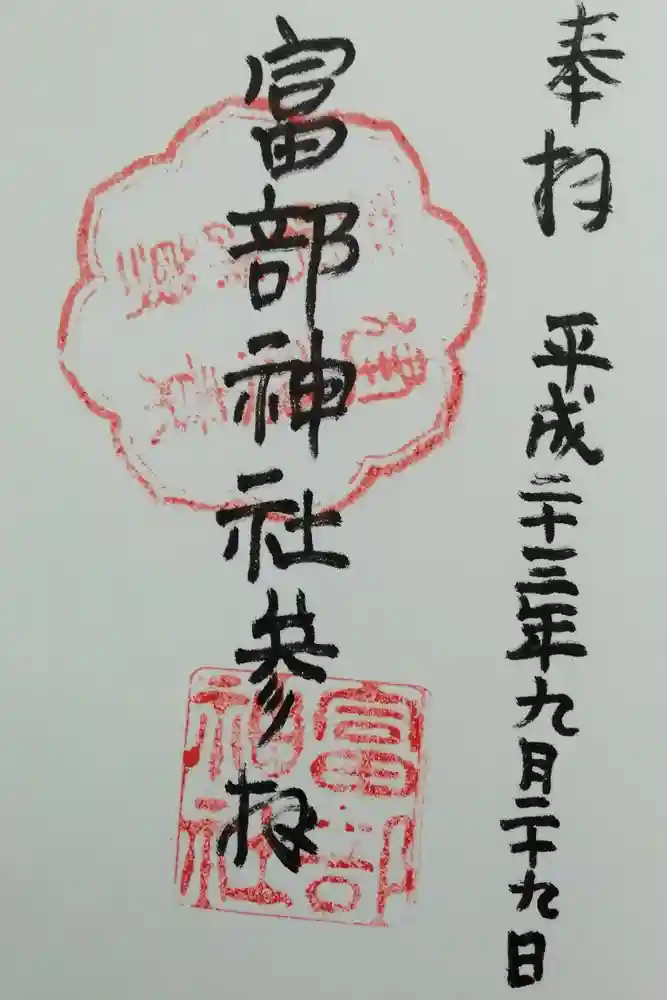 奉拝 平成二十三年九月二十九日
富部神社参拝
富部神社